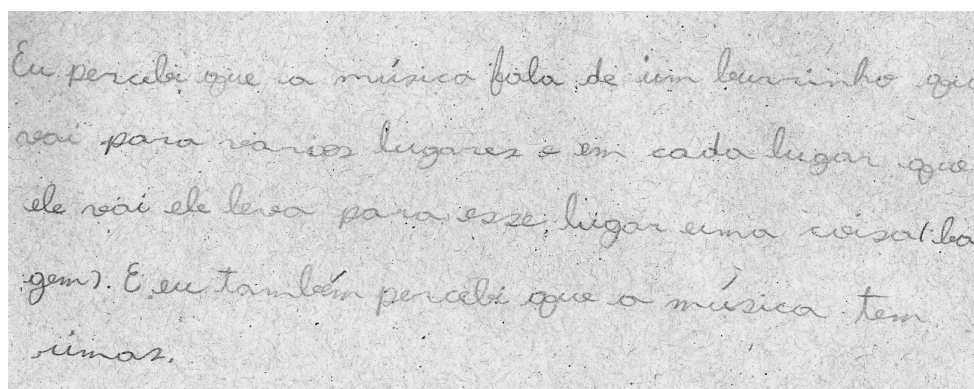 Eu percebi que a música fala de um burrinho que
vai para varios lugares e em cada lugar que
ele vai ele leva para esse lugar uma coisa (ba
gem). E eu também percebi que a música tem
rimas.